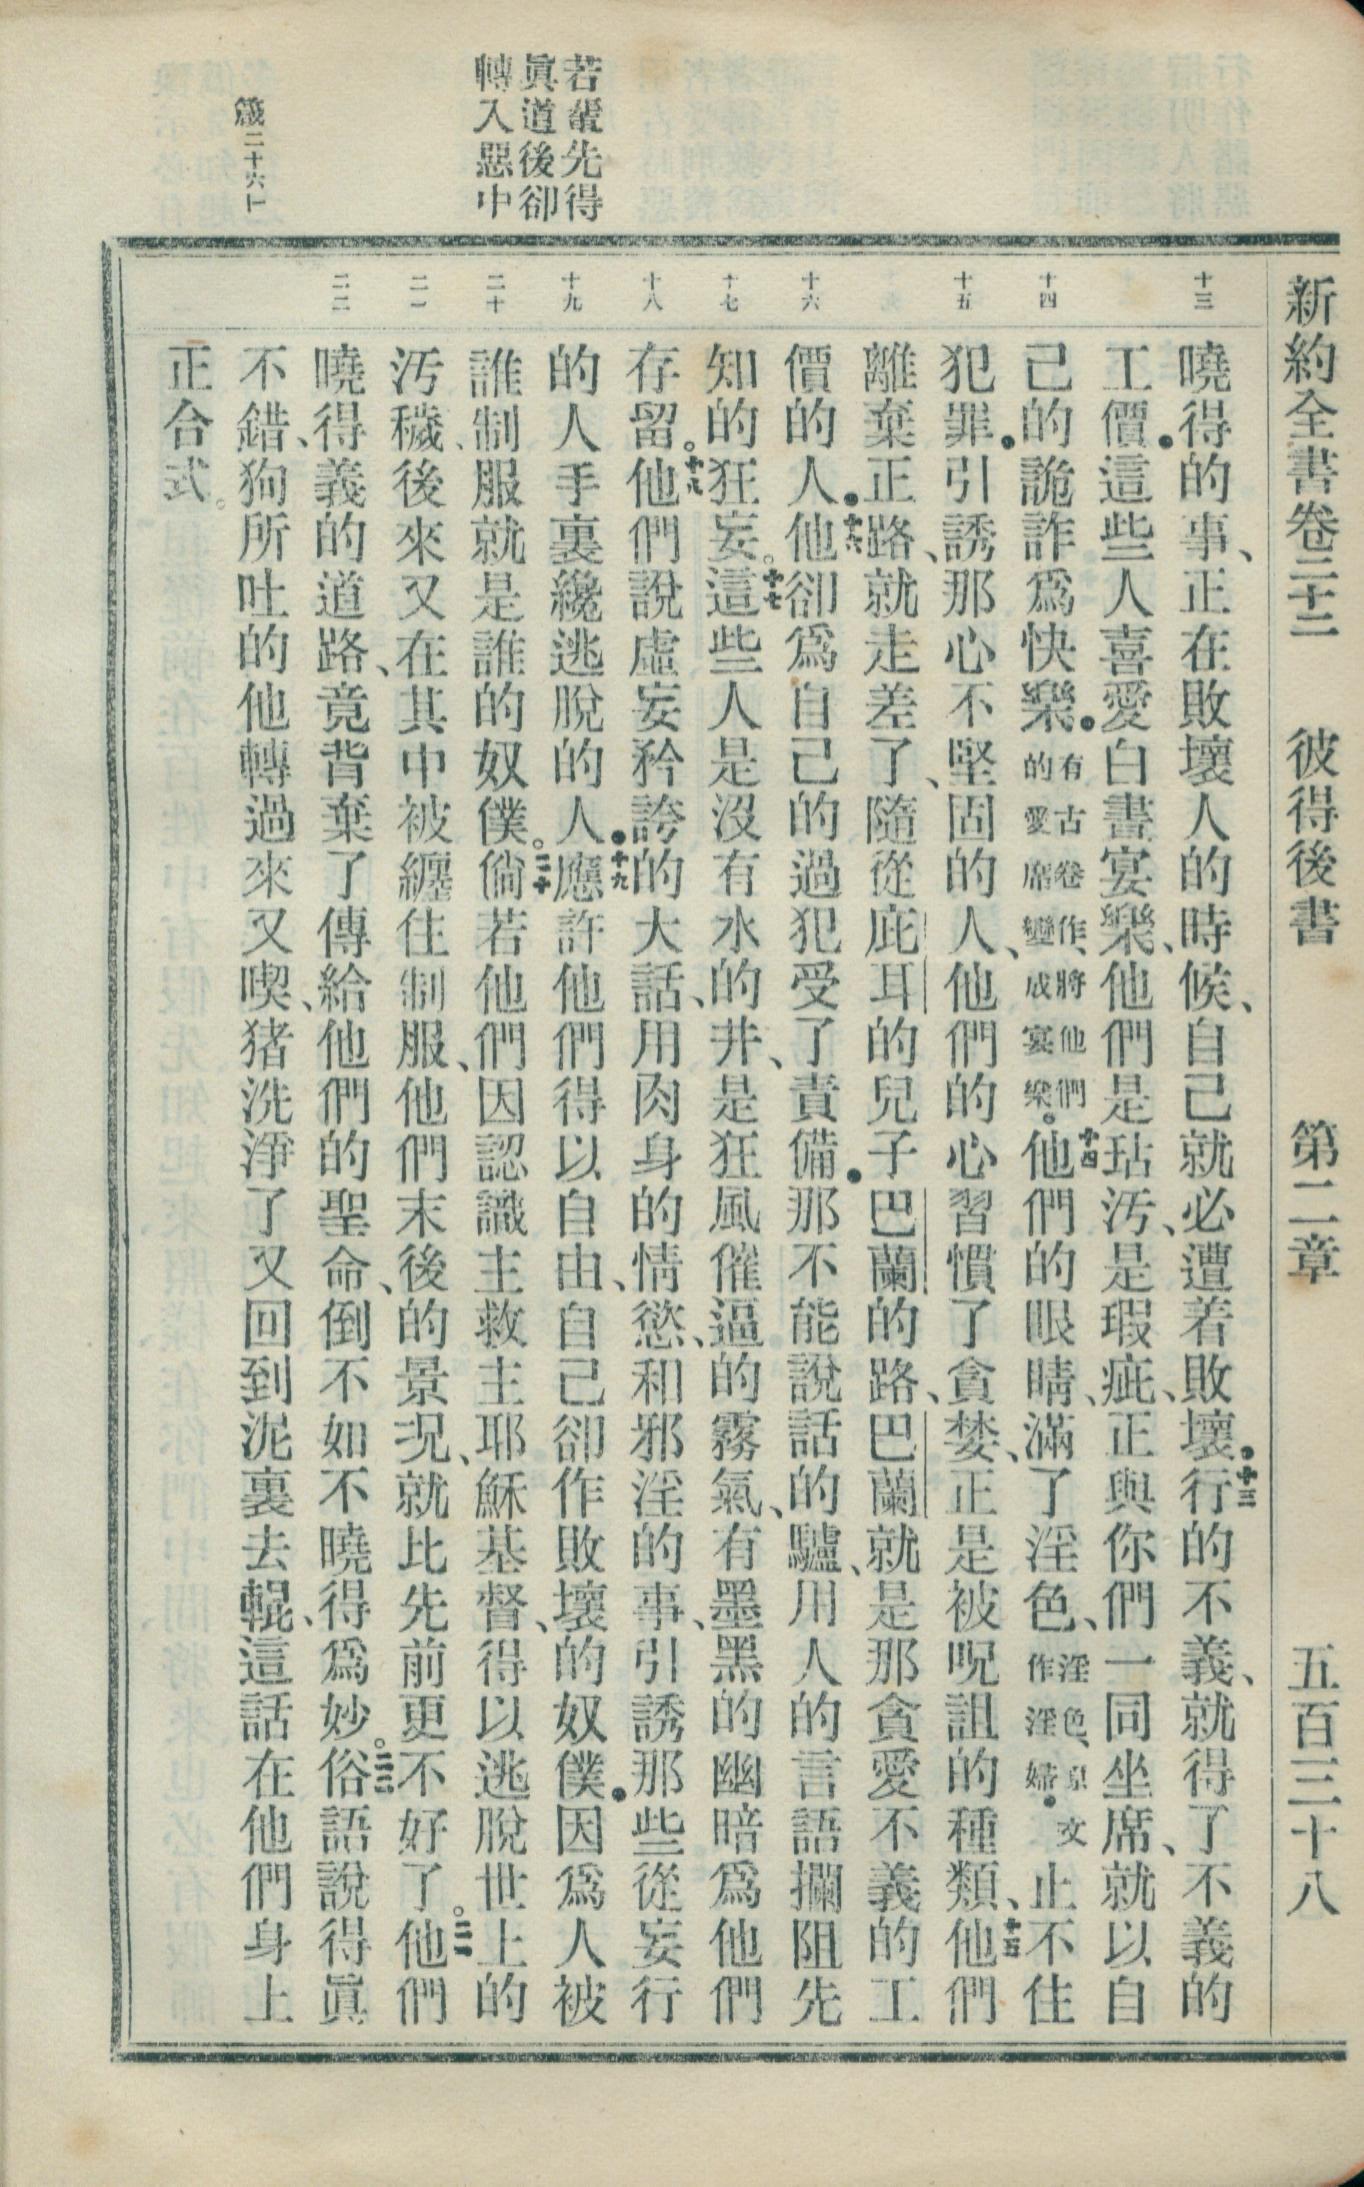 新約全書卷二十二 彼得後書 第二章 五百三十八
若輩先得
眞道後卻
轉入惡中
箴二十六
十三
十四
十五
十六
十七
十八
十九
二十
二一
二二
曉得的事、正在敗壞人的時候、自己就必遭着敗壞．十三行的不義、就得了不義的
工價．這些人喜愛白晝宴樂、他們是玷汚、是瑕疵、正與你們一同坐席、就以自
己的詭詐爲快樂．有古卷作、將他們的愛席變成宴樂。十四他們的眼睛、滿了淫色、淫色、原文作淫婦．止不住
犯罪．引誘那心不堅固的人、他們的心習慣了貪婪、正是被呪詛的種類、十五他們
離棄正路、就走差了、隨從庇耳的兒子巴蘭的路、巴蘭就是那貪愛不義的工
價的人．十六他卻爲自己的過犯受了責備．那不能說話的驢、用人的言語攔阻先
知的狂妄。十七這些人是沒有水的井、是狂風催逼的霧氣、有墨黑的幽暗爲他們
存留。十八他們說虛妄矜誇的大話、用肉身的情慾、和邪淫的事、引誘那些從妄行
的人手裏纔逃脫的人．十九應許他們得以自由、自己卻作敗壞的奴僕．因爲人被
誰制服就是誰的奴僕。二十倘若他們因認識主救主耶穌基督、得以逃脫世上的
汚穢、後來又在其中被纏住制服、他們末後的景況、就比先前更不好了。二一他們
曉得義的道路、竟背棄了傳給他們的聖命、倒不如不曉得爲妙。二二俗語說得眞
不錯、狗所吐的他轉過來又喫、猪洗淨了又回到泥裏去輥、這話在他們身上
正合式。